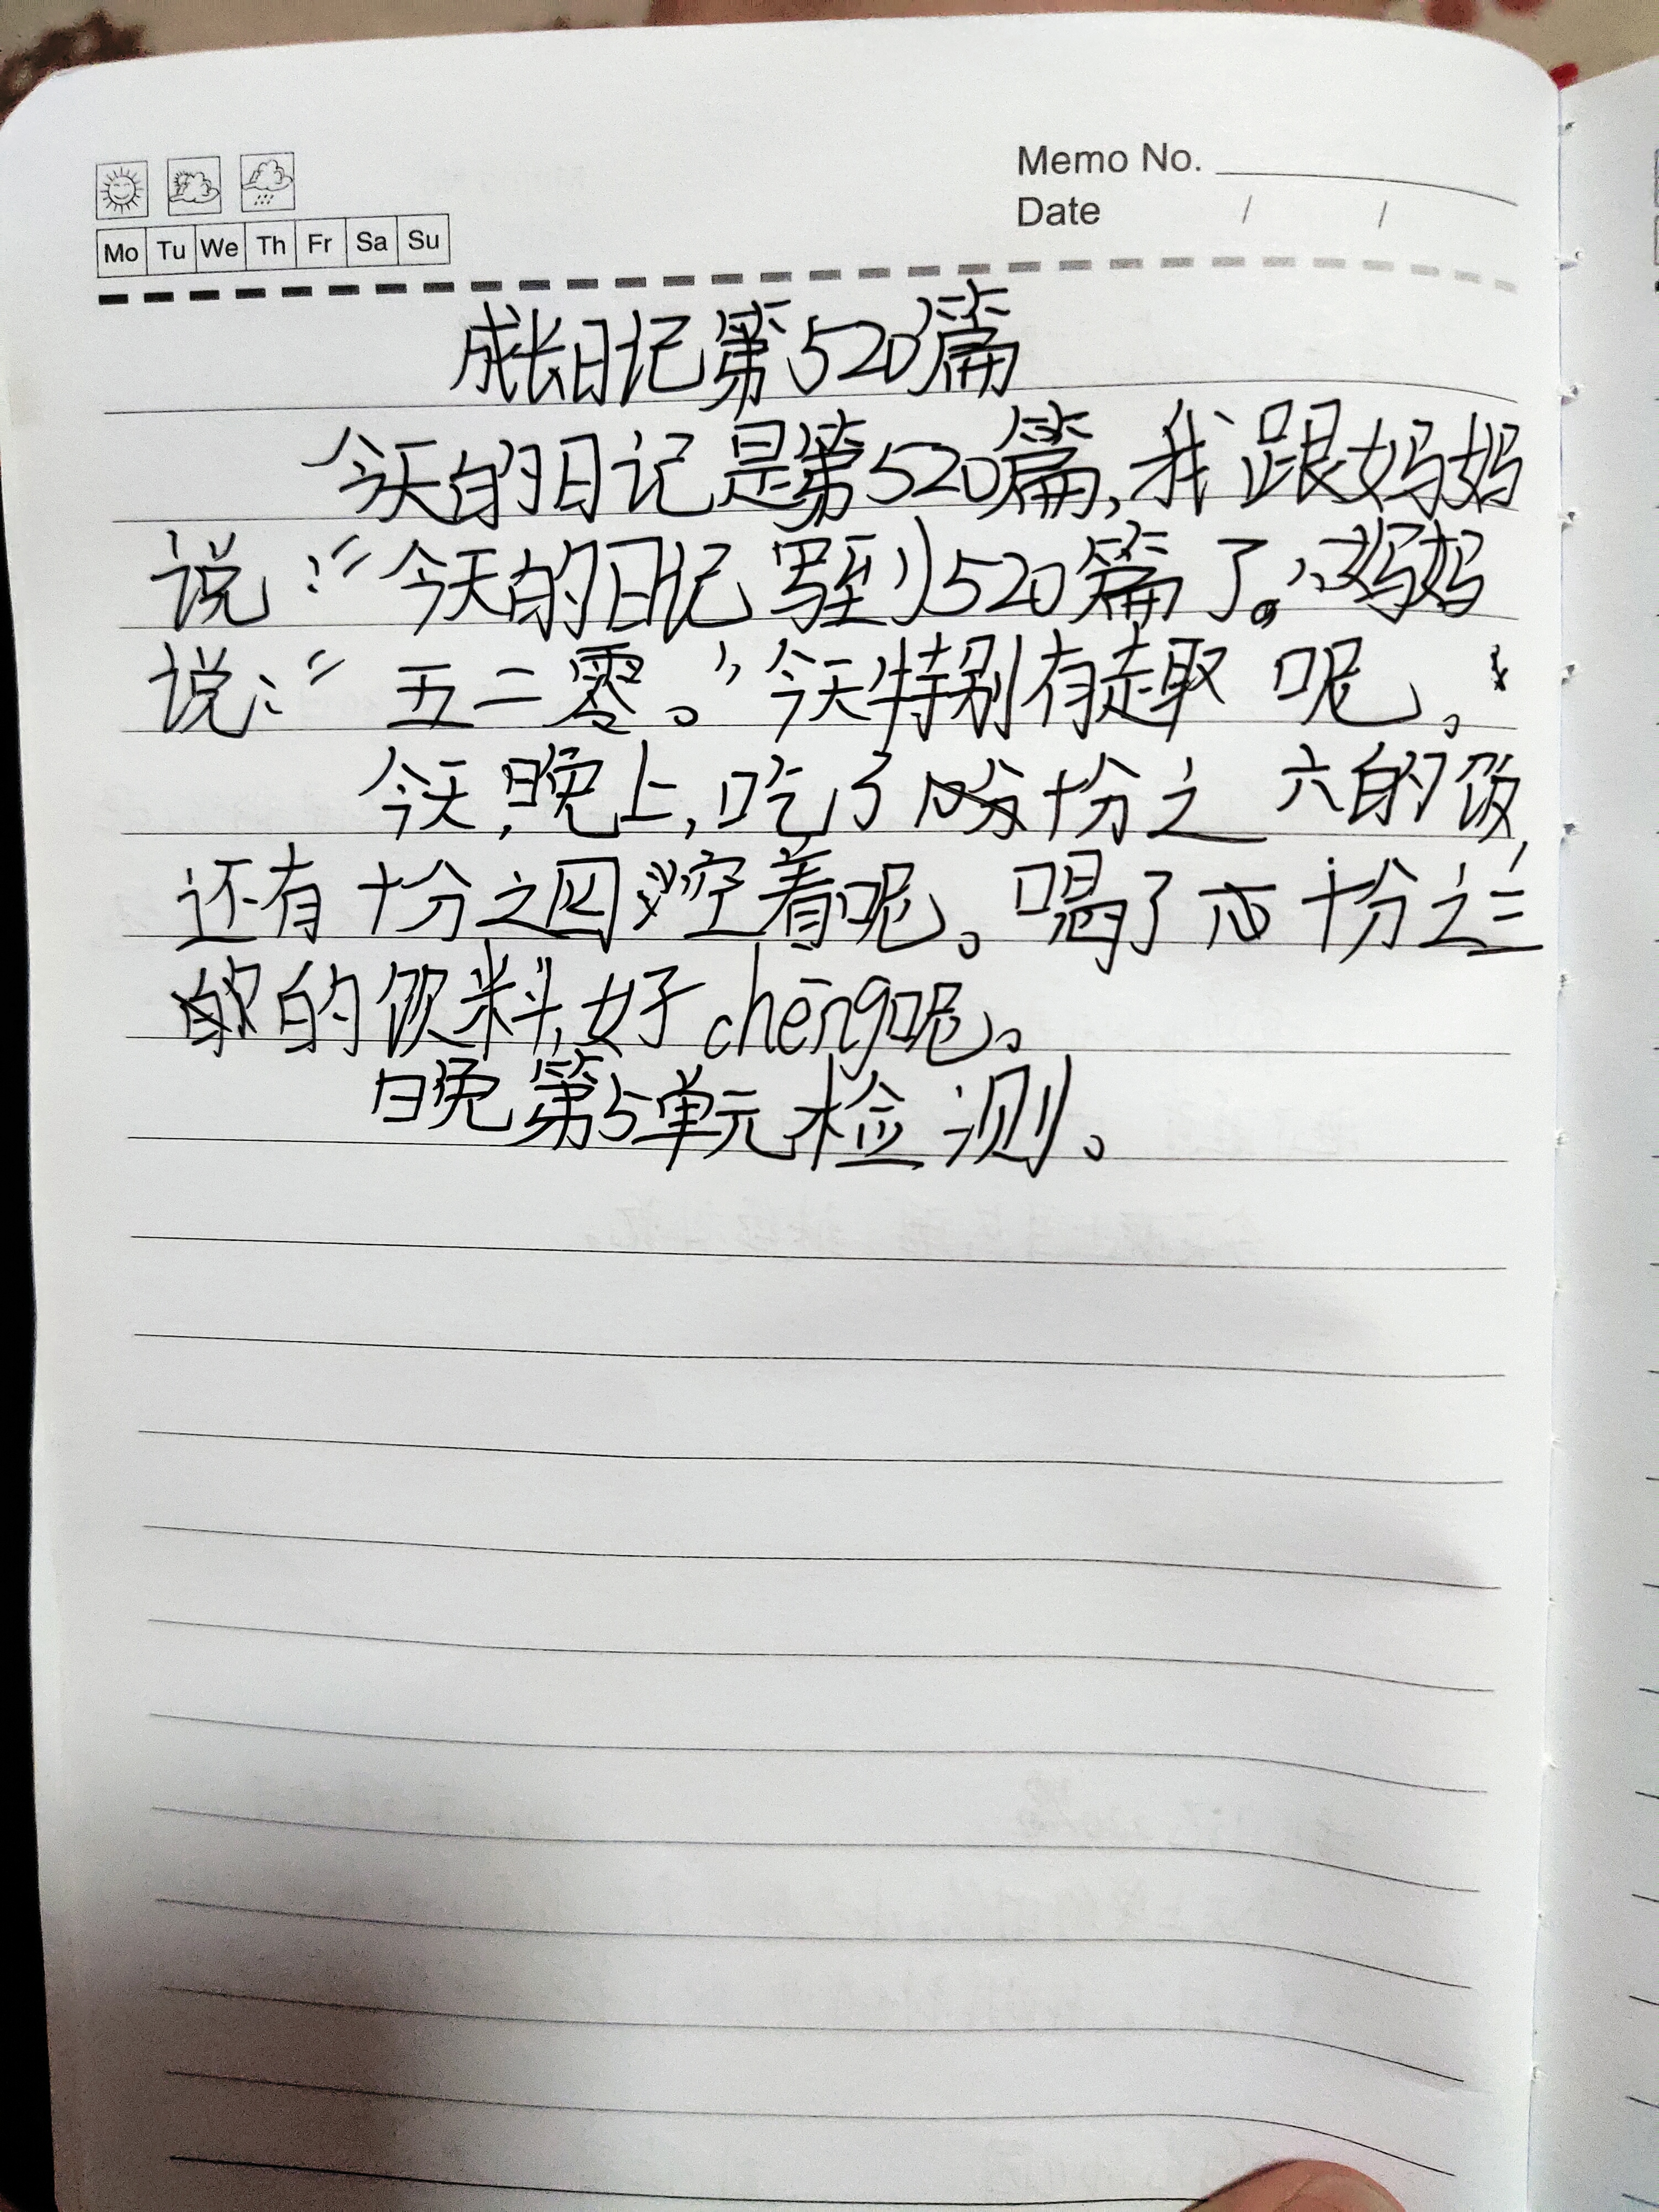 Memo No.
Date / /
Mo Tu We Th Fr Sa Su
成长日记第520篇
今天的日记是第520篇,我跟妈妈
说:“今天的日记写到520篇了。”妈妈
说:“五二零。”今天特别有趣呢。
今天,晚上,吃了十份之六的饭,
还有十分之四空着呢。喝了十分之三
的饮料,好chēng呢。
晚第5单元检测。